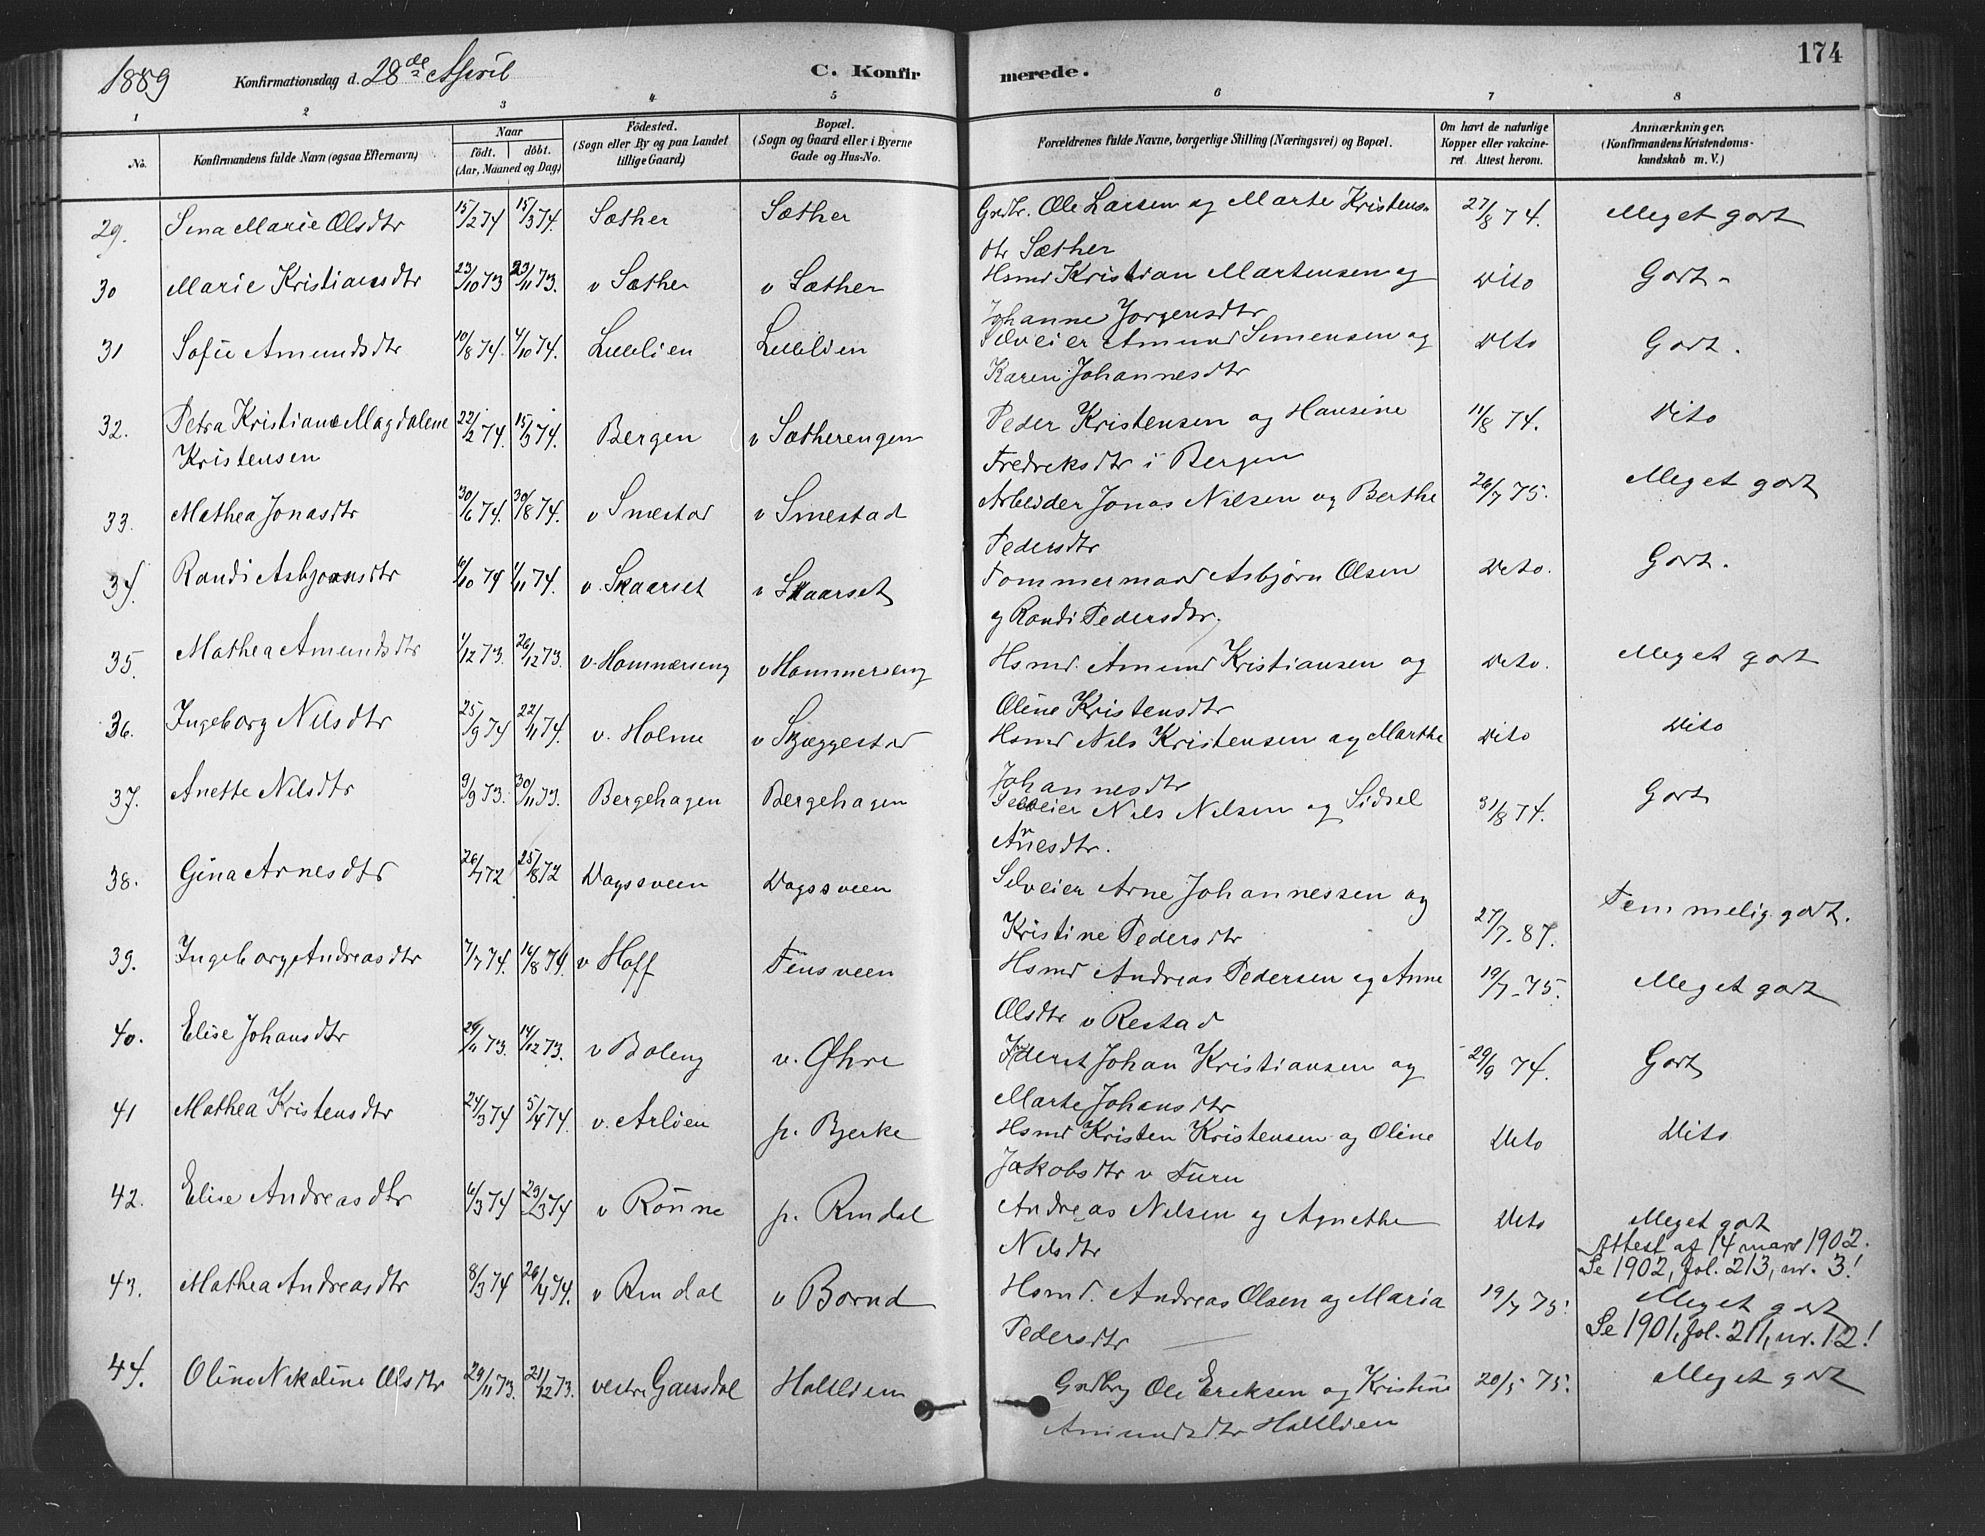 1889 Konfirmationsdag d. 28de April C. Konfirmerede. 174
1 2 3 4 5 6 7 8
No. Konfirmandens fulde Navn (ogsaa Efternavn) Naar födt. döbt. (Aar, Maaned og Dag) Födested. (Sogn eller By og paa Landet tillige Gaard) Bopæl. (Sogn og Gaard eller i Byerne Gade og Hus-No. Forældrenes fulde Navne, borgerlige Stilling (Næringsvei) og Bopæl. Om havt de naturlige Kopper eller vakcineret. Attest herom. Anmærkninger. (Konfirmandens Kristendomskundskab m. V.)
29. Sina Marie Olsdtr 15/2 74 15/3 74. Sæther Sæther Grdbr. Ole Larsen og Marte Kristens- 27/8 74. Meget godt
dtr Sæther
30 Marie Kristiansdtr 23/10 73 23/11 73. v Sæther v Sæther Hsmd Kristian Martensen og Dito Godt
Johanne Jorgensdtr
31 Sofie Amundsdtr 10/8 74. 4/10 74. Lillelien Lillelien Selveier Amund Simensen og Dito Godt.
Karen Johannesdtr
32. Petra Kristiane Magdalene 22/2 74. 15/3 74. Bergen v Sætherengen Peder Kristensen og Hansine 11/8 74. Dito
Kristensen Fredriksdtr i Bergen
33. Mathea Jonasdtr 30/6 74. 30/8 74. v Smestad v Smestad Arbeider Jonas Nilsen og Berthe 26/7 75. Meget godt
Pedersdtr
34. Randi Asbjørnsdtr 6/10 74 1/11 74. v. Skaarset v Skaarset Tommermand Asbjørn Olsen Dito. Godt.
og Randi Pedersdtr.
35. Mathea Amundsdtr 1/12 73. 26/12 73. v. Hammerseng v Hammerseng Hsmd. Amund Kristiansen og Dito. Meget godt
Oline Kristensdtr
36. Ingeborg Nilsdtr 25/9 74 22/11 74. v. Holme v Skjæggestad Hsmd Nils Kristensen og Marthe Dito Dito
Johannesdtr
37. Anette Nilsdtr 9/9 73. 30/11 73. Bergehagen Bergehagen Selveier Nils Nilsen og Sidsel 31/8 74. Godt
Arnesdtr.
38. Gina Arnesdtr 26/1 72 25/8 72 Dagssveen Dagssveen Selveier Arne Johannessen og 27/7. 87. Temmelig godt.
Kristine Pedersdtr
39. Ingeborg Andreasdtr 7/7 74. 16/8 74. v Hoff Tünsveen Hsmd Andreas Pedersen og Anne 19/7. 75. Meget godt
Olsdtr v Restad
40. Elise Johansdtr 29/11 73. 14/12 73. v Boleng v. Øhre Johan Kristiansen og 29/9 74. Godt
Marte Johansdtr
41 Mathea Kristensdtr 24/3 74 5/4 74. v. Arlien p. Bjerke Hsmd Kristen Kristensen og Oline Dito Dito
Jakobsdtr v Turn
42. Elise Andreasdtr 6/3 74 29/3 74 v Rönne p. Rindal Andreas Nilsen og Agnethe Dito Meget godt
Nilsdtr Attest af 14 mars 1902.
Se 1902, fol. 213, nr. 3!
43. Mathea Andreasdtr 8/3 74 26/4 74. v Rindal v Bornd Hsmd. Andreas Olsen og Maria 19/7 75. Meget godt
Pedersdtr Se 1901, fol. 211, nr. 12!
44. Oline Nikoline Olsdtr 29/11 73. 21/12 73. vestre Gausdal Holtlien Grdbrg Ole Eriksen og Kristine 20/5 75. Meget godt
Amundsdtr Holtlien